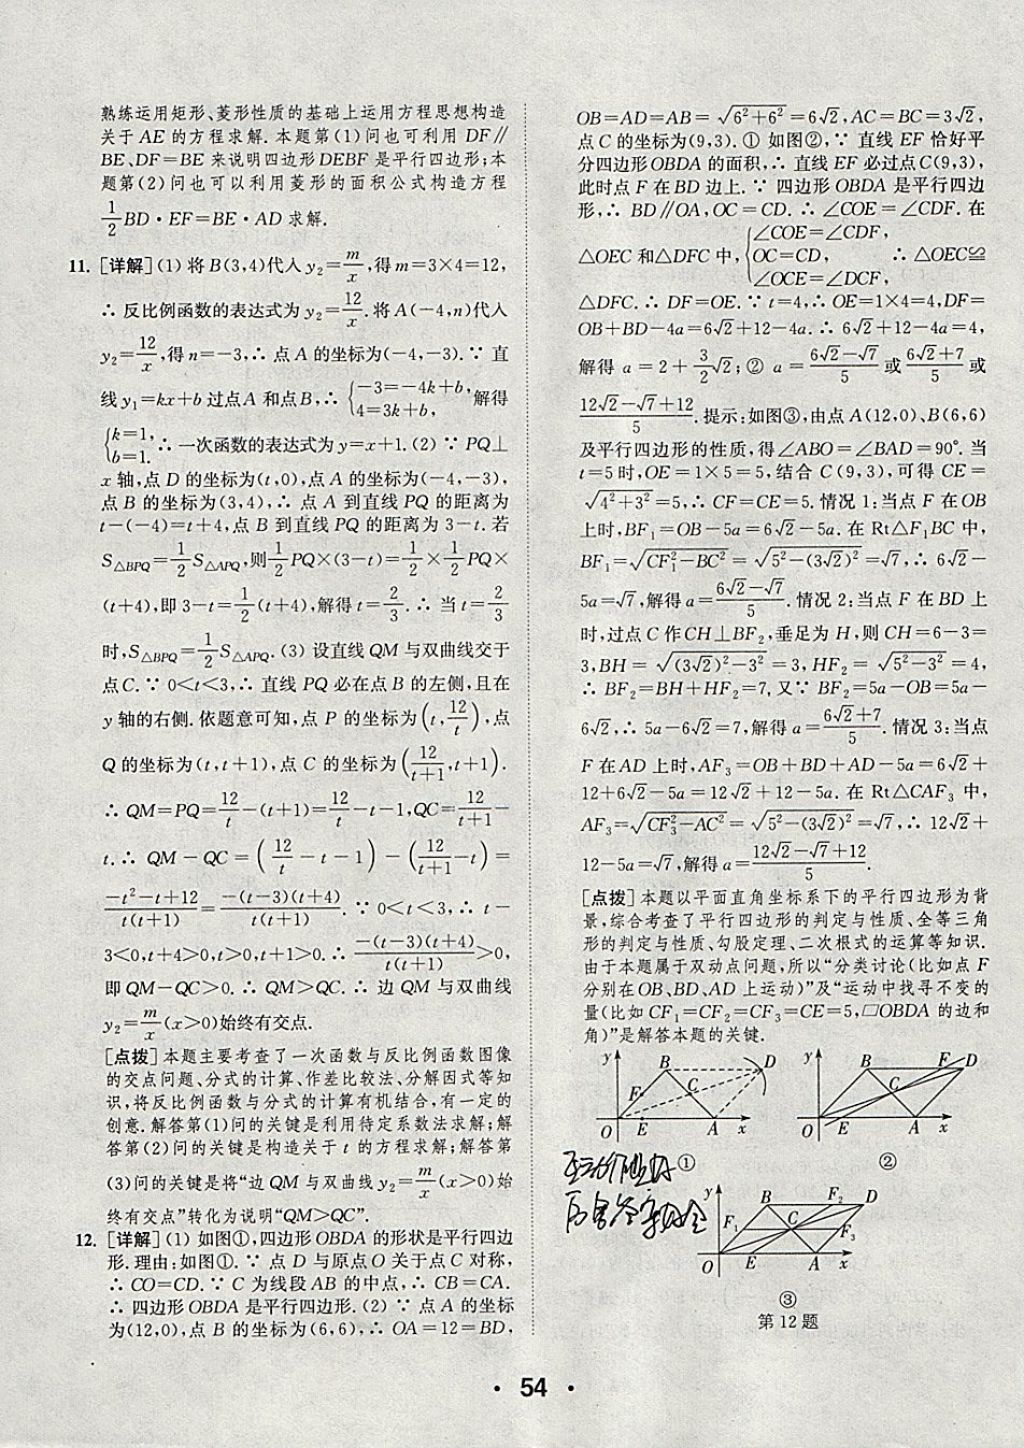 熟练运用矩形、菱形性质的基础上运用方程思想构造
关于 AE 的方程求解. 本题第(1)问也可利用 DF∥
BE、DF=BE 来说明四边形 DEBF 是平行四边形;本
题第(2)问也可以利用菱形的面积公式构造方程
1/2 BD·EF=BE·AD 求解.
11. [详解](1) 将 B(3,4)代入 y₂=m/x,得 m=3×4=12,
∴ 反比例函数的表达式为 y₂=12/x.将 A(-4,n)代入
y₂=12/x,得 n=-3,∴ 点 A 的坐标为(-4,-3).∵ 直
线 y₁=kx+b 过点 A 和点 B,∴ {-3=-4k+b, 4=3k+b, 解得
{k=1, b=1. ∴ 一次函数的表达式为 y=x+1.(2) ∵ PQ⊥
x 轴,点 D 的坐标为(t,0),点 A 的坐标为(-4,-3),
点 B 的坐标为(3,4),∴ 点 A 到直线 PQ 的距离为
t-(-4)=t+4,点 B 到直线 PQ 的距离为 3-t.若
S△BPQ=1/2 S△APQ,则 1/2 PQ×(3-t)=1/2×1/2 PQ×
(t+4),即 3-t=1/2(t+4),解得 t=2/3.∴ 当 t=2/3
时,S△BPQ=1/2 S△APQ.(3) 设直线 QM 与双曲线交于
点C.∵ 0<t<3,∴ 直线 PQ 必在点 B 的左侧,且在
y 轴的右侧.依题意可知,点 P 的坐标为(t,12/t),点
Q 的坐标为(t,t+1),点 C 的坐标为(12/(t+1),t+1).
∴ QM=PQ=12/t-(t+1)=12/t-t-1,QC=12/(t+1)-
t.∴ QM-QC=(12/t-t-1)-(12/(t+1)-t)=
(-t²-t+12)/(t(t+1))=(-(t-3)(t+4))/(t(t+1)).∵ 0<t<3,∴ t-
3<0,t+4>0,t>0,t+1>0.∴ (-(t-3)(t+4))/(t(t+1))>0,
即 QM-QC>0.∴ QM>QC.∴ 边 QM 与双曲线
y₂=m/x(x>0)始终有交点.
[点拨]本题主要考查了一次函数与反比例函数图像
的交点问题、分式的计算、作差比较法、分解因式等知
识,将反比例函数与分式的计算有机结合,有一定的
创意.解答第(1)问的关键是利用待定系数法求解;解
答第(2)问的关键是构造关于 t 的方程求解;解答第
(3)问的关键是将“边 QM 与双曲线 y₂=m/x(x>0)始
终有交点”转化为说明“QM>QC”.
12. [详解](1) 如图①,四边形 OBDA 的形状是平行四边
形.理由:如图①.∵ 点 D 与原点 O 关于点 C 对称,
∴ CO=CD.∵ C 为线段 AB 的中点,∴ CB=CA.
∴ 四边形 OBDA 是平行四边形.(2) ∵ 点 A 的坐标
为(12,0),点 B 的坐标为(6,6),∴ OA=12=BD,
OB=AD=AB=√(6²+6²)=6√2,AC=BC=3√2,
点 C 的坐标为(9,3).① 如图②,∵ 直线 EF 恰好平
分四边形 OBDA 的面积,∴ 直线 EF 必过点 C(9,3),
此时点 F 在 BD 边上.∵ 四边形 OBDA 是平行四边
形,∴ BD∥OA,OC=CD.∴ ∠COE=∠CDF.在
△OEC 和△DFC 中,{∠COE=∠CDF, OC=CD, ∠OCE=∠DCF, ∴ △OEC≌
△DFC.∴ DF=OE.∵ t=4,∴ OE=1×4=4,DF=
OB+BD-4a=6√2+12-4a.∴ 6√2+12-4a=4,
解得 a=2+3/2√2;② a=(6√2-√7)/5或(6√2+7)/5或
(12√2-√7+12)/5.提示:如图③,由点 A(12,0)、B(6,6)
及平行四边形的性质,得∠ABO=∠BAD=90°.当
t=5时,OE=1×5=5,结合 C(9,3),可得 CE=
√(4²+3²)=5,∴ CF=CE=5.情况 1:当点 F 在 OB
上时,BF₁=OB-5a=6√2-5a.在 Rt△F₁BC 中,
BF₁=√(CF₁²-BC²)=√(5²-(3√2)²)=√7,∴ 6√2-
5a=√7,解得 a=(6√2-√7)/5.情况 2:当点 F 在 BD 上
时,过点 C 作 CH⊥BF₂,垂足为 H,则 CH=6-3=
3,BH=√((3√2)²-3²)=3,HF₂=√(5²-3²)=4,
∴ BF₂=BH+HF₂=7.又∵ BF₂=5a-OB=5a-
6√2,∴ 5a-6√2=7,解得 a=(6√2+7)/5.情况 3:当点
F 在 AD 上时,AF₃=OB+BD+AD-5a=6√2+
12+6√2-5a=12√2+12-5a.在 Rt△CAF₃ 中,
AF₃=√(CF₃²-AC²)=√(5²-(3√2)²)=√7,∴ 12√2+
12-5a=√7,解得 a=(12√2-√7+12)/5.
[点拨]本题以平面直角坐标系下的平行四边形为背
景,综合考查了平行四边形的判定与性质、全等三角
形的判定与性质、勾股定理、二次根式的运算等知识.
由于本题属于双动点问题,所以“分类讨论(比如点 F
分别在 OB、BD、AD 上运动)”及“运动中找寻不变的
量(比如 CF₁=CF₂=CF₃=CE=5,□OBDA 的边和
角)”是解答本题的关键.
y B D F C O E A x
①
y B F D C O E A x
②
y B F₂ D F₁ C F₃ O E A x
③
第12题
· 54 ·